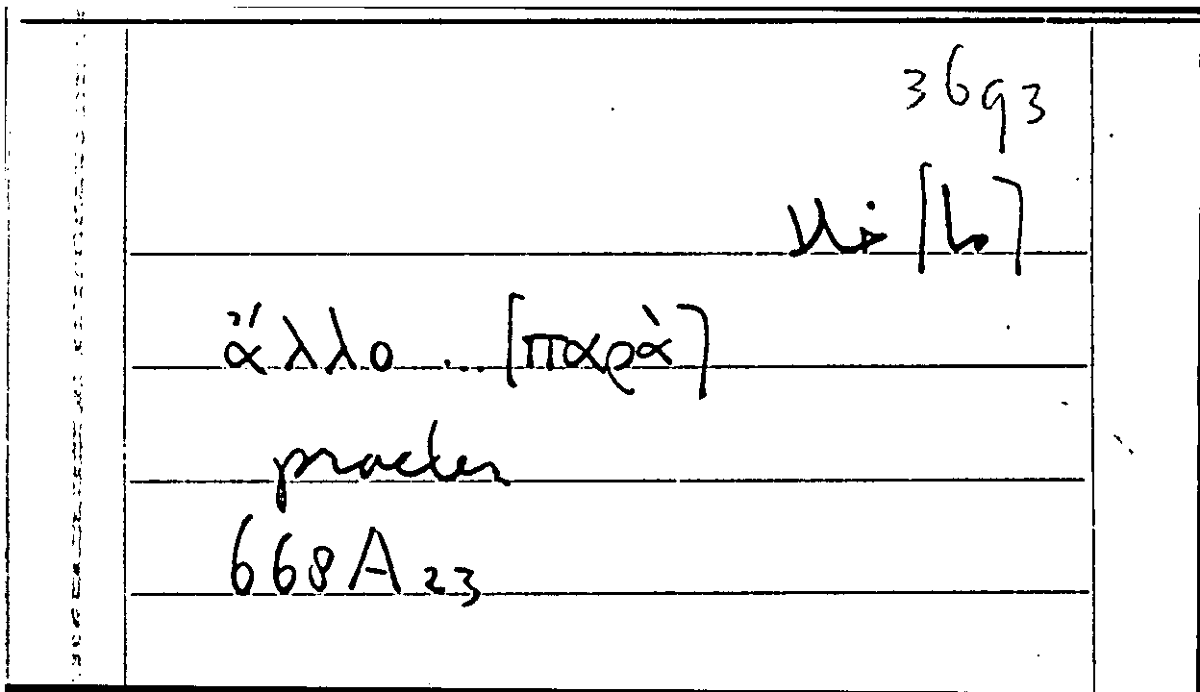 3693
[b]
ἄλλο ... [παρὰ]
praeter
668A23